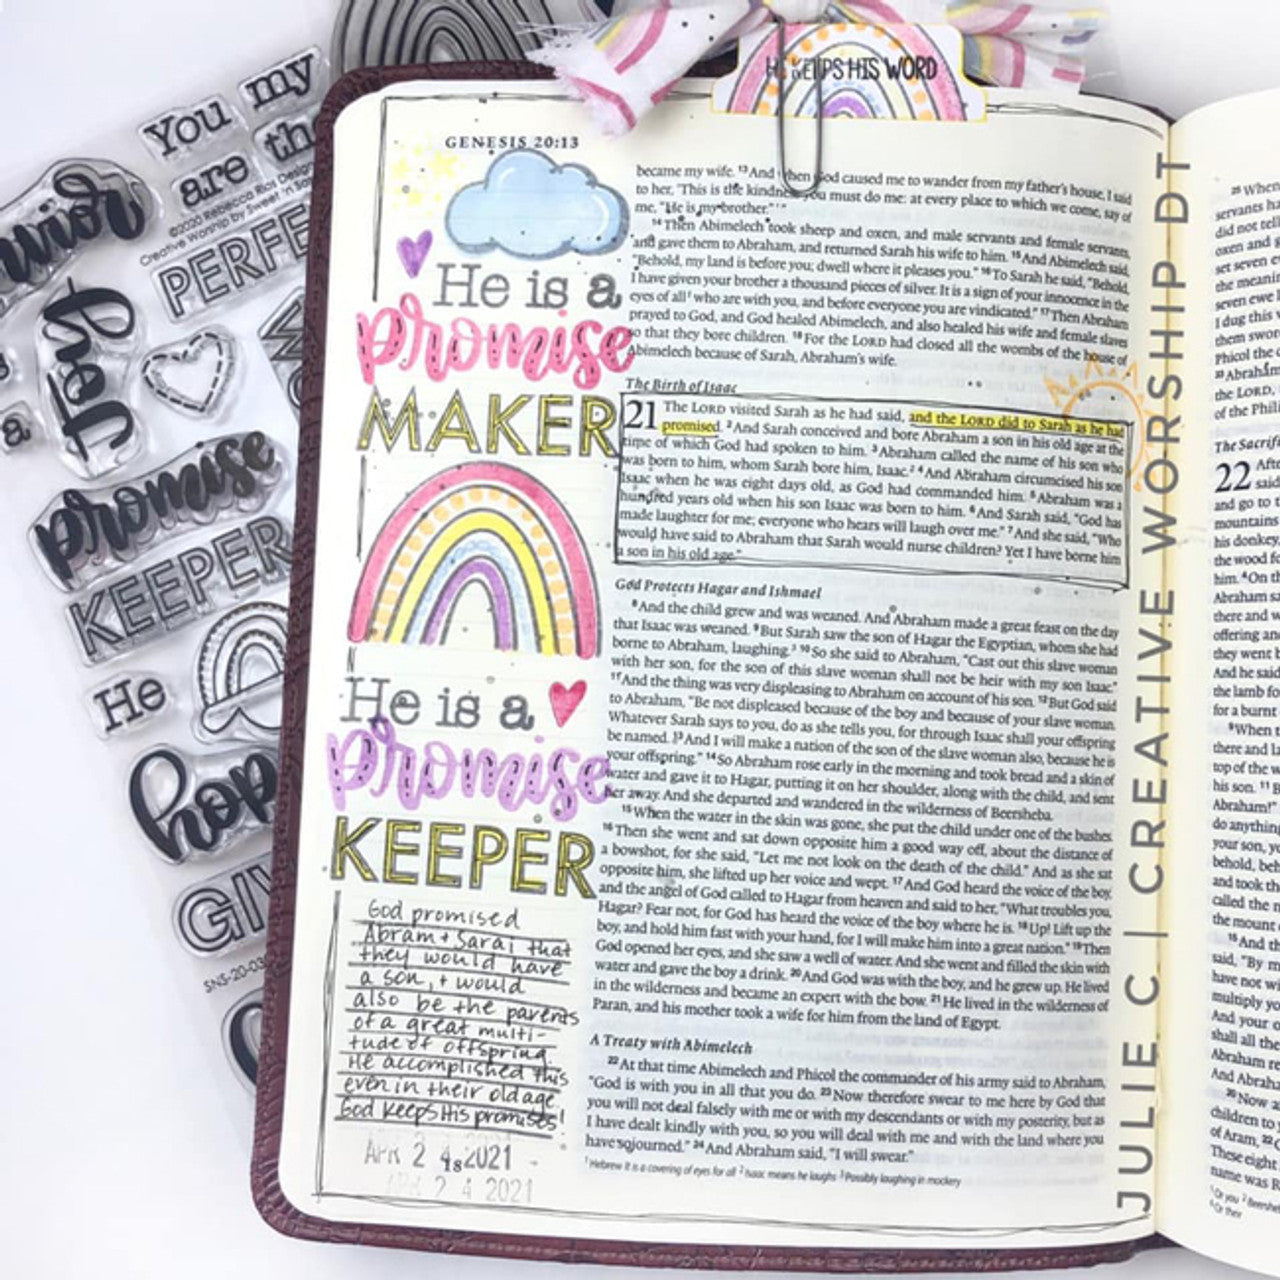 You
my
are
the
©2020 Rebecca Rios Designs
Creative Worship by Sweet 'n Sassy
PERFE
promise
KEEPER
He
hop
GIV
SNS-20-03
HE KEEPS HIS WORD
GENESIS 20:13
He is a
promise
MAKER
He is a
promise
KEEPER
God promised
Abram + Sarai that
they would have
a son, + would
also be the parents
of a great multi-
tude of offspring
He accomplished this
even in their old age
God keeps His promises!
APR 2 4 2021
APR 2 4 2021
became my wife. 13 And when God caused me to wander from my father's house, I said
to her, 'This is the kindness you must do me: at every place to which we come, say of
me, "He is my brother."'"
14 Then Abimelech took sheep and oxen, and male servants and female servants,
and gave them to Abraham, and returned Sarah his wife to him. 15 And Abimelech said,
"Behold, my land is before you; dwell where it pleases you." 16 To Sarah he said, "Behold,
I have given your brother a thousand pieces of silver. It is a sign of your innocence in the
eyes of all1 who are with you, and before everyone you are vindicated." 17 Then Abraham
prayed to God, and God healed Abimelech, and also healed his wife and female slaves
so that they bore children. 18 For the LORD had closed all the wombs of the house of
Abimelech because of Sarah, Abraham's wife.
The Birth of Isaac
21 The LORD visited Sarah as he had said, and the LORD did to Sarah as he had
promised. 2 And Sarah conceived and bore Abraham a son in his old age at the
time of which God had spoken to him. 3 Abraham called the name of his son who
was born to him, whom Sarah bore him, Isaac.2 4 And Abraham circumcised his son
Isaac when he was eight days old, as God had commanded him. 5 Abraham was a
hundred years old when his son Isaac was born to him. 6 And Sarah said, "God has
made laughter for me; everyone who hears will laugh over me." 7 And she said, "Who
would have said to Abraham that Sarah would nurse children? Yet I have borne him
a son in his old age."
God Protects Hagar and Ishmael
8 And the child grew and was weaned. And Abraham made a great feast on the day
that Isaac was weaned. 9 But Sarah saw the son of Hagar the Egyptian, whom she had
borne to Abraham, laughing.3 10 So she said to Abraham, "Cast out this slave woman
with her son, for the son of this slave woman shall not be heir with my son Isaac."
11 And the thing was very displeasing to Abraham on account of his son. 12 But God said
to Abraham, "Be not displeased because of the boy and because of your slave woman.
Whatever Sarah says to you, do as she tells you, for through Isaac shall your offspring
be named. 13 And I will make a nation of the son of the slave woman also, because he is
your offspring." 14 So Abraham rose early in the morning and took bread and a skin of
water and gave it to Hagar, putting it on her shoulder, along with the child, and sent
her away. And she departed and wandered in the wilderness of Beersheba.
15 When the water in the skin was gone, she put the child under one of the bushes.
16 Then she went and sat down opposite him a good way off, about the distance of
a bowshot, for she said, "Let me not look on the death of the child." And as she sat
opposite him, she lifted up her voice and wept. 17 And God heard the voice of the boy,
and the angel of God called to Hagar from heaven and said to her, "What troubles you,
Hagar? Fear not, for God has heard the voice of the boy where he is. 18 Up! Lift up the
boy, and hold him fast with your hand, for I will make him into a great nation." 19 Then
God opened her eyes, and she saw a well of water. And she went and filled the skin with
water and gave the boy a drink. 20 And God was with the boy, and he grew up. He lived
in the wilderness and became an expert with the bow. 21 He lived in the wilderness of
Paran, and his mother took a wife for him from the land of Egypt.
A Treaty with Abimelech
22 At that time Abimelech and Phicol the commander of his army said to Abraham,
"God is with you in all that you do. 23 Now therefore swear to me here by God that
you will not deal falsely with me or with my descendants or with my posterity, but as
I have dealt kindly with you, so you will deal with me and with the land where you
have sojourned." 24 And Abraham said, "I will swear."
1 Hebrew It is a covering of eyes for all 2 Isaac means he laughs 3 Possibly laughing in mockery
48
JULIE C | CREATIVE WORSHIP DT
25 When
servants ha
did not tell
oxen and g
set seven e
the meanin
seven ewe l
I dug this w
them swor
Phicol the c
33 Abraham
the LORD,
of the Phili
The Sacrifi
22 Afte
said
and go to t
mountains
his donkey,
the wood fo
him. 4 On th
Abraham sa
there and w
offering an
they went b
And he said
the lamb fo
for a burnt
9 When t
there and la
top of the w
his son. 11 B
Abraham!"
do anythin
your son, yo
behold, beh
and took th
called the n
the mount
15 And th
said, "By m
have not wi
multiply yo
And your o
shall all the
Abraham re
And Abraha
20 Now a
children to y
of Aram, 22 C
These eight
name was R
1 Or you 2 Beersheb
4 Or their